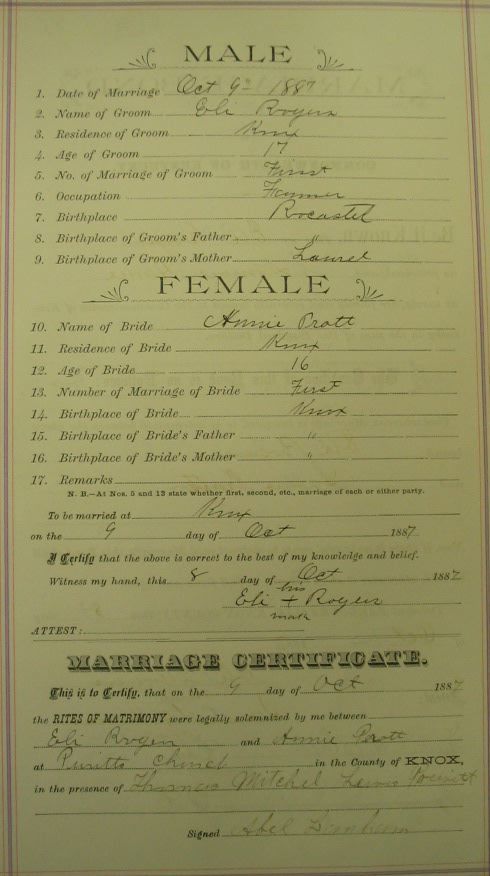 MALE
1. Date of Marriage Oct 9th 1887
2. Name of Groom Eli Rogers
3. Residence of Groom Knox
4. Age of Groom 17
5. No. of Marriage of Groom First
6. Occupation Farmer
7. Birthplace Rocastel
8. Birthplace of Groom's Father "
9. Birthplace of Groom's Mother Laurel
FEMALE
10. Name of Bride Annie Pratt
11. Residence of Bride Knox
12. Age of Bride 16
13. Number of Marriage of Bride First
14. Birthplace of Bride Knox
15. Birthplace of Bride's Father "
16. Birthplace of Bride's Mother "
17. Remarks
N. B.—At Nos. 5 and 13 state whether first, second, etc., marriage of each or either party.
To be married at Knox
on the 9 day of Oct 1887
I Certify that the above is correct to the best of my knowledge and belief.
Witness my hand, this 8 day of Oct 1887
his
Eli + Rogers
mark
ATTEST:
MARRIAGE CERTIFICATE.
This is to Certify, that on the 9 day of Oct 1887
the RITES OF MATRIMONY were legally solemnized by me between
Eli Rogers and Annie Pratt
at Church in the County of KNOX,
in the presence of Thomas Mitchel Lewis
Signed Abel